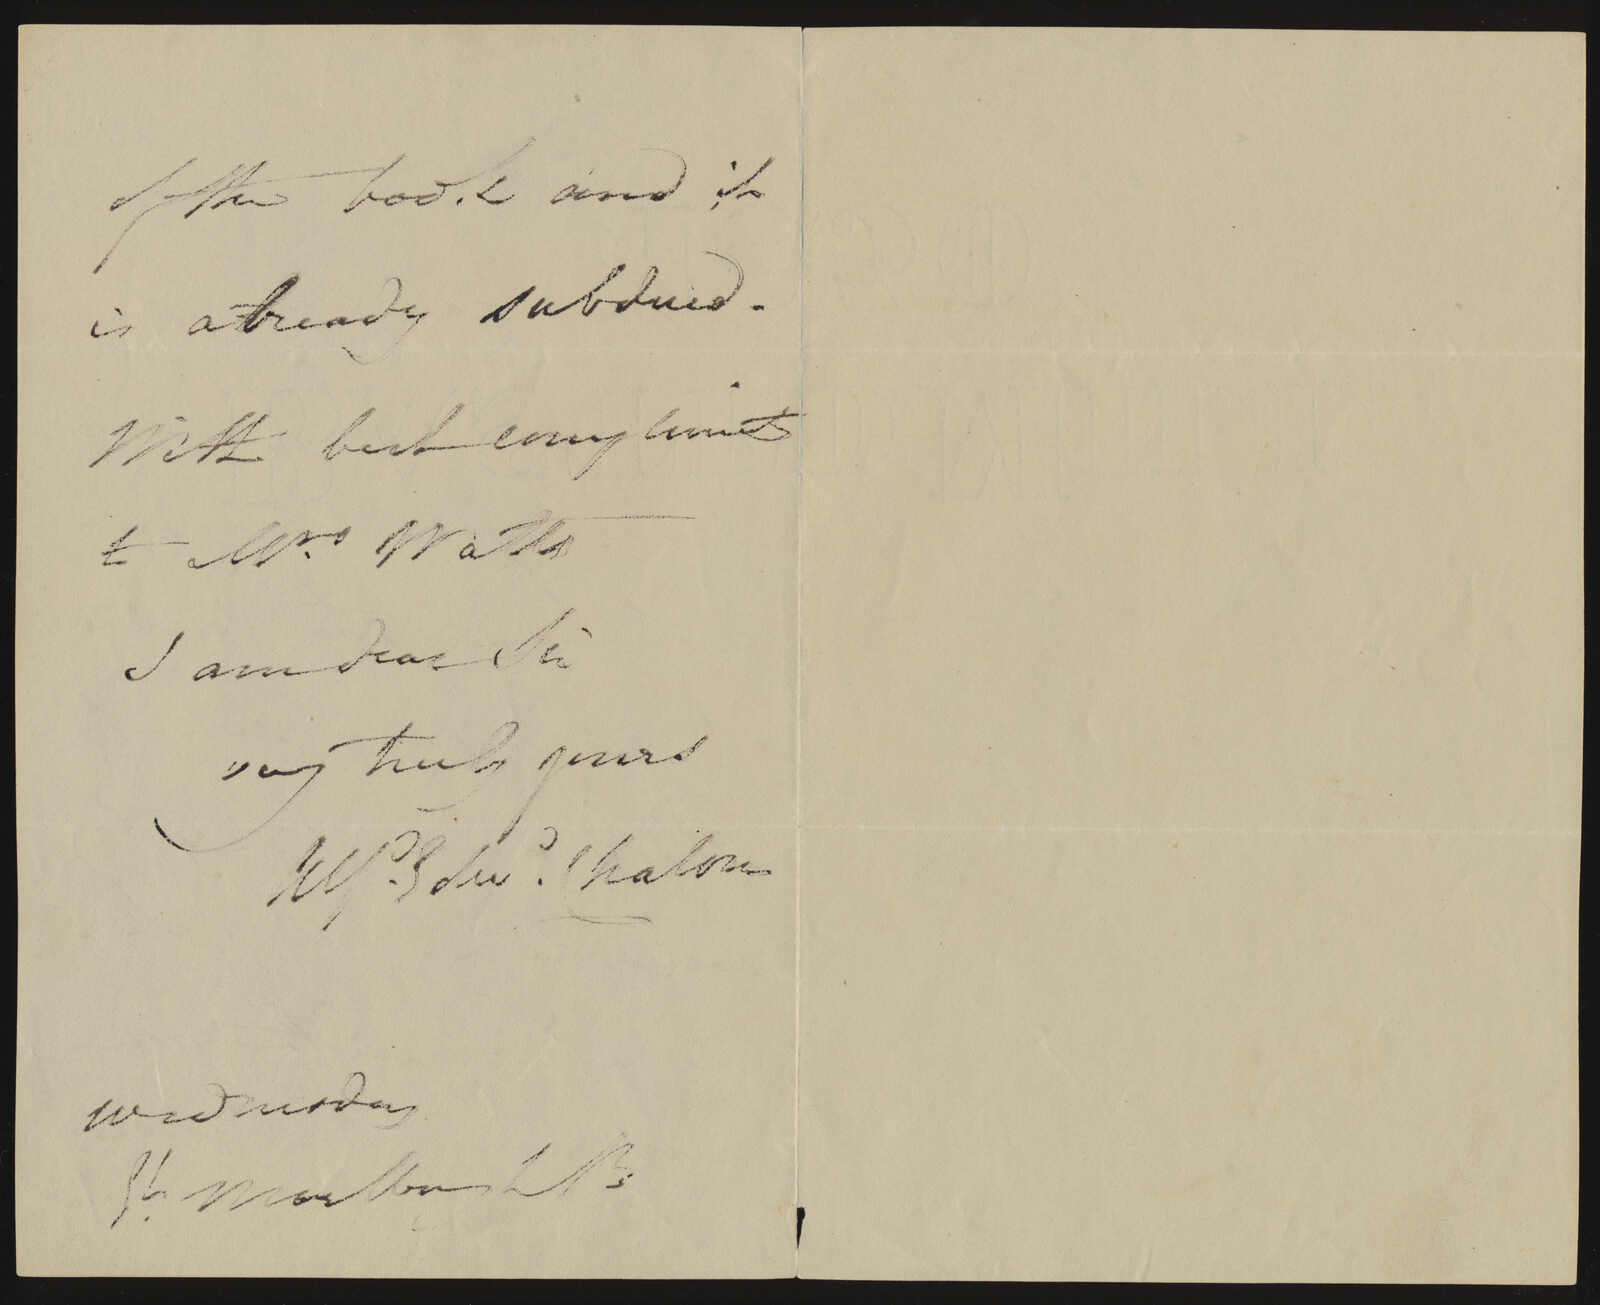 of the book and it
is already subdued.
With best compliments
to Mrs Watts
I am dear Sir
very truly yours
Alfd. Edwd. Chalon
Wednesday
Gt. Marlborough St